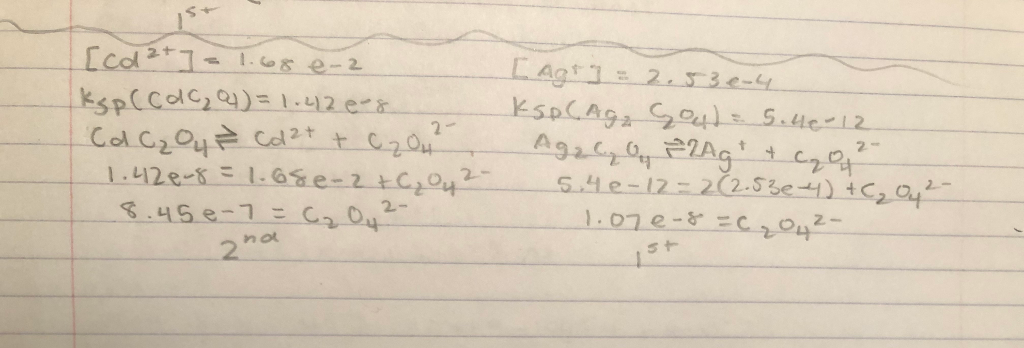 1st
[Cd2+] = 1.68 e-2
Ksp(CdC2O4) = 1.42 e-8
CdC2O4 ⇌ Cd2+ + C2O4 2-
1.42e-8 = 1.68e-2 + C2O4 2-
8.45 e-7 = C2O4 2-
2nd
[Ag+] = 2.53e-4
Ksp(Ag2 C2O4) = 5.4e-12
Ag2C2O4 ⇌ 2Ag+ + C2O4 2-
5.4e-12 = 2(2.53e-4) + C2O4 2-
1.07e-8 = C2O4 2-
1st